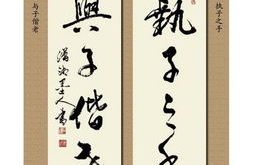 执子之手
執子之手
與子偕老
与子偕老